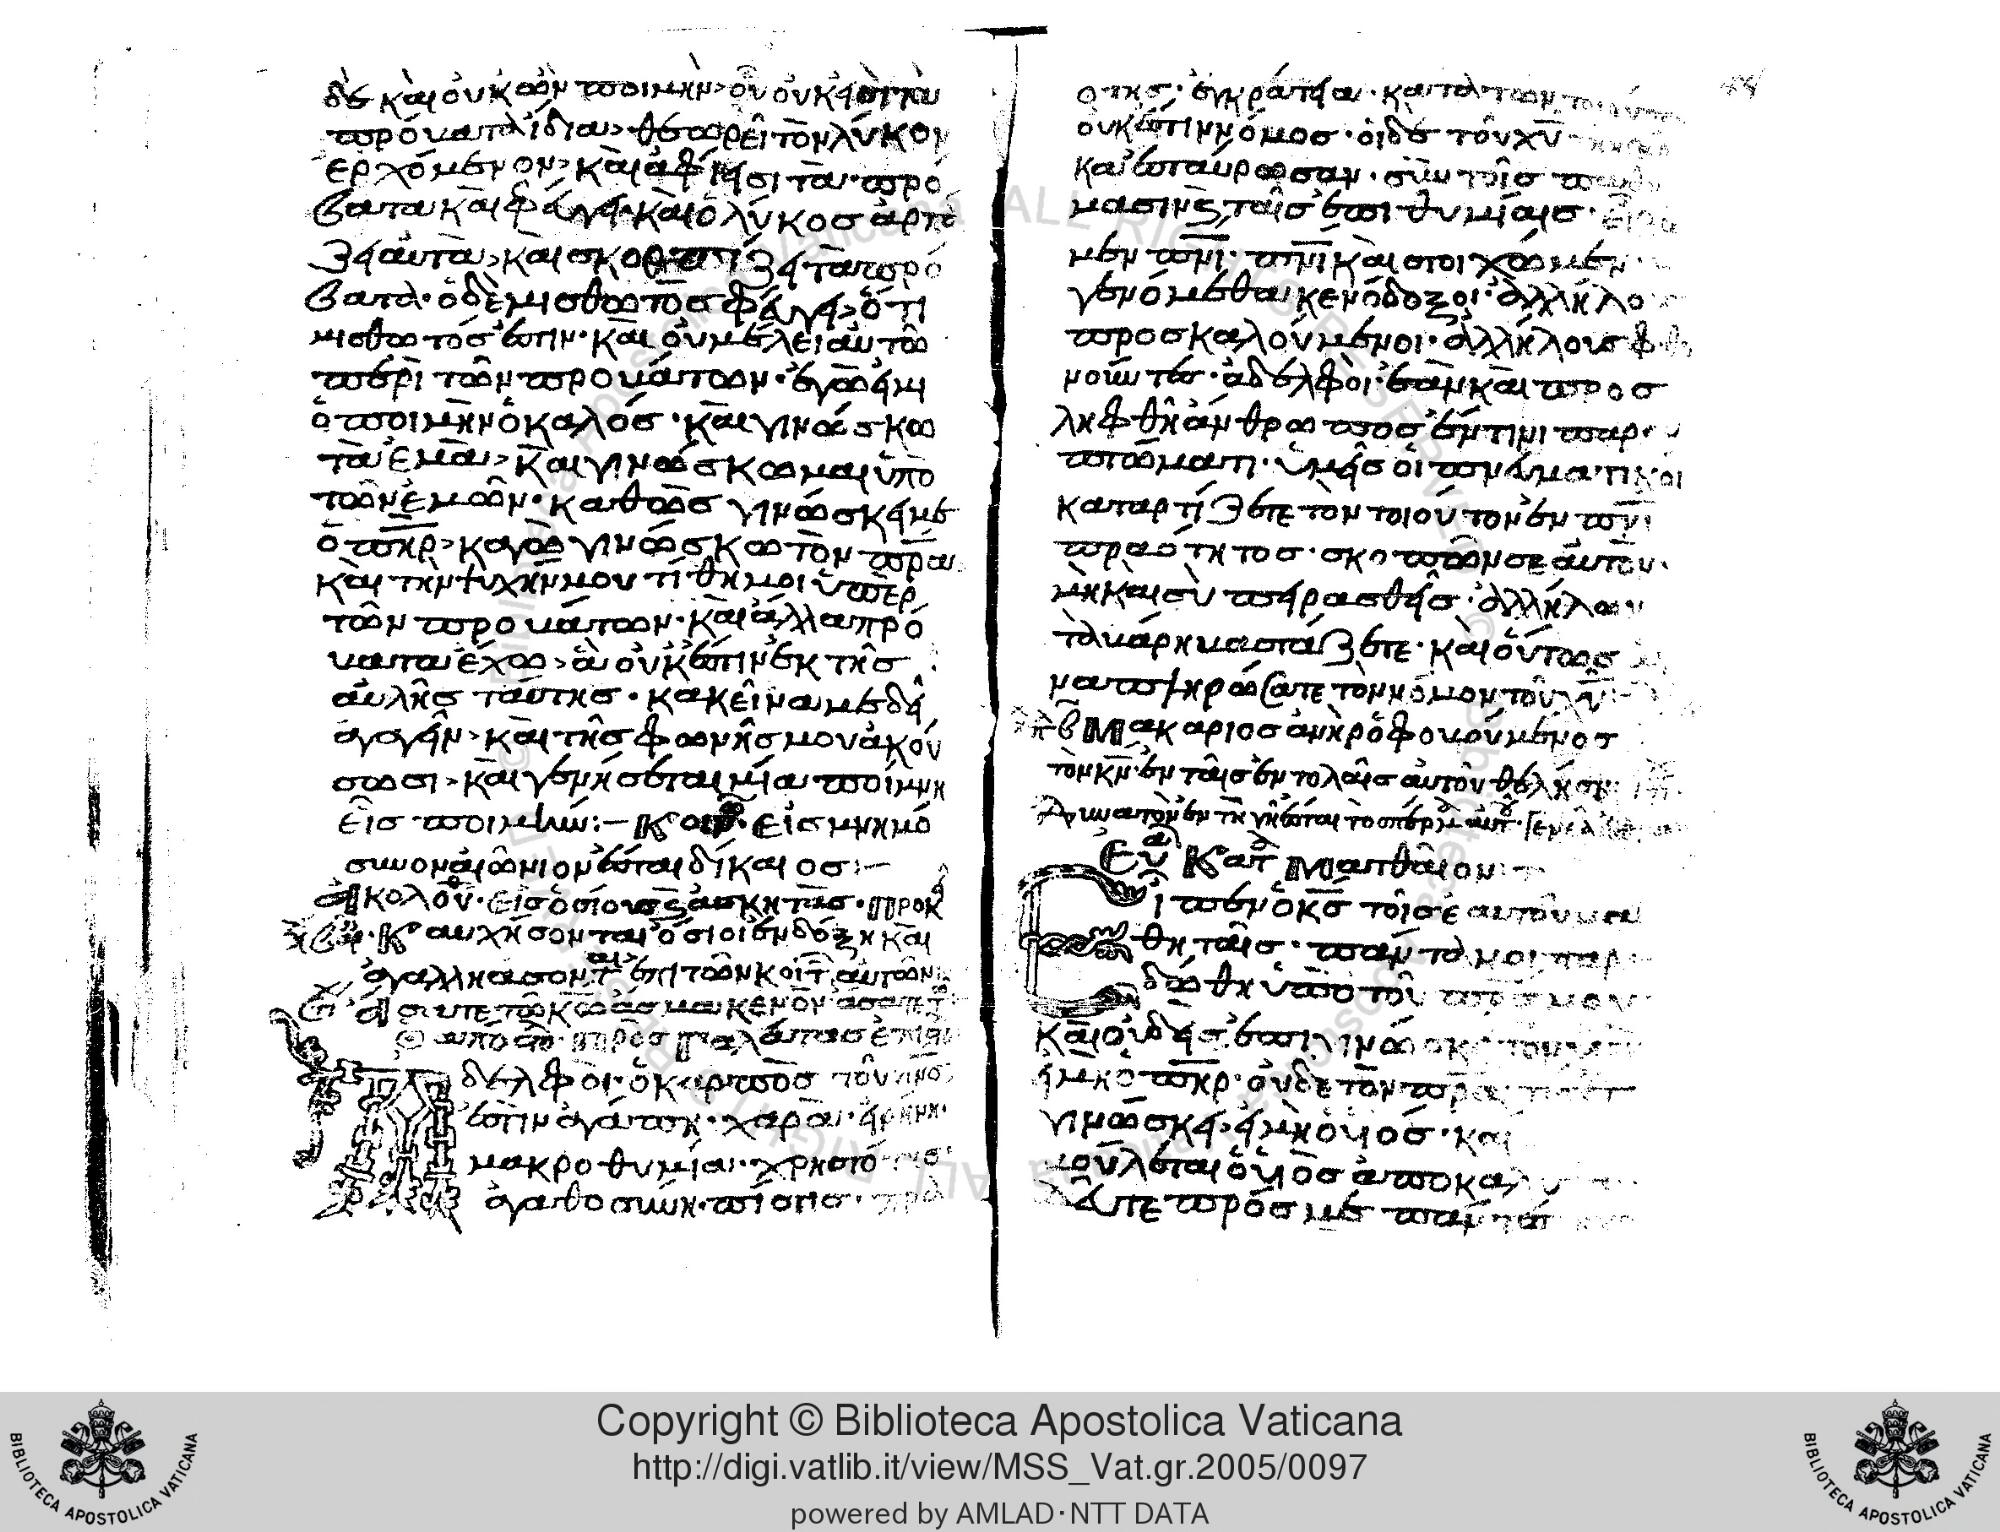 δὲ καὶ οὐκ ὢν ποιμήν, οὗ οὐκ εἰσὶ τὰ
πρόβατα ἴδια, θεωρεῖ τὸν λύκον
ἐρχόμενον, καὶ ἀφίησι τὰ πρό
βατα καὶ φεύγει, καὶ ὁ λύκος ἁρπά
ζει αὐτὰ, καὶ σκορπίζει τὰ πρό
βατα. ὁ δὲ μισθωτὸς φεύγει, ὅτι
μισθωτός ἐστιν. καὶ οὐ μέλει αὐτῶ
περὶ τῶν προβάτων. ἐγώ εἰμι
ὁ ποιμὴν ὁ καλός. καὶ γινώσκω
τὰ ἐμὰ, καὶ γινώσκωμαι ὑπὸ
τῶν ἐμῶν. καθὼς γινώσκει με
ὁ πηρ, καγὼ γινώσκω τὸν πρα
καὶ τὴν ψυχήν μου τίθημοι ὑπὲρ
τῶν προβάτων. καὶ ἄλλα πρό
βατα ἔχω, ἃ οὐκ ἔστιν ἐκ τῆς
αὐλῆς ταύτης. κακεῖνα με δεῖ
ἀγαγεῖν, καὶ τῆς φωνῆς μου ἀκού
σωσι, καὶ γενήσεται μία ποίμνη
εἷς ποιμήν:– Κοιν. Εἰς μνημό
συνον αἰώνιον ἔσται δίκαιος:–
Ἀκολου. εἰς ὁσίους ϛ ἀσκητάς. προκ
Καυχήσονται ὅσιοι ἐν δόξη καὶ
ἀγαλλιάσονται ἐπὶ τῶν κοιτ αὐτῶν
ᾄσατε τῶ κω ᾆσμα κενὸν ἄσατε τ
ἀπόστο. πρὸς Γαλάτας ἐπι
Ἀδελφοὶ. ὁ καρπὸς τοῦ πνσ
ἐστὶν ἀγάπη. χαρὰ. εἰρήνη.
μακροθυμία. χρηστότης
ἀγαθοσύνη. πίστις. πρα
ότης. ἐγκράτεια. κατὰ τῶν τοιούτων
οὐκ ἔστιν νόμος. οἱ δὲ τοῦ χυ
κα ἐσταύρωσαν. σὺν τοῖς παθή
μασιν ϛ ταῖς ἐπιθυμίαις. εἰ ζω
μεν πνι. πνι καὶ στοιχῶμεν.
γενόμεθα κενόδοξοι. ἀλλήλο
προσκαλούμενοι. ἀλλήλους φθο
νοῦντες. ἀδελφοὶ. ἐὰν καὶ προς
ληφθῆ ἄνθρωπος ἔν τινι παρα
πτώματι. ὑμεῖς οἱ πνευματικοὶ
καταρτίζετε τὸν τοιοῦτον ἐν πνι
πραότητος. σκοπῶν σεαυτὸν.
μὴ καὶ σὺ πειρασθεῖς. ἀλλήλων
τὰ βάρη βαστάζετε. καὶ οὕτως
ναπληρώσατε τὸν νόμον τοῦ χυ
Μακάριος ἀνὴρ ὁ φοβούμενος
τὸν κν. ἐν ταῖς ἐντολαῖς αὐτοῦ θελήσει
Δυνατὸν ἐν τῆ γῆ ἔσται τὸ σπέρμα αὐτ.
Εὐα Κατ Ματθαῖον
Εἶπεν ὁ κς τοῖς ἑαυτοῦ μα
θηταῖς. πάντα μοι παρε
δώθη ὑπὸ τοῦ πρς μου
καὶ οὐδεὶς ἐπιγινώσκει τὸν
εἰ μὴ ὁ πηρ. οὐδὲ τὸν πρα τις
γινώσκει, εἰ μὴ ὁ υἱός. καὶ
βούλεται ὁ υἱὸς ἀποκα
Δεῦτε πρός με πάντες
Copyright © Biblioteca Apostolica Vaticana
http://digi.vatlib.it/view/MSS_Vat.gr.2005/0097
powered by AMLAD·NTT DATA
BIBLIOTECA APOSTOLICA VATICANA
BIBLIOTECA APOSTOLICA VATICANA